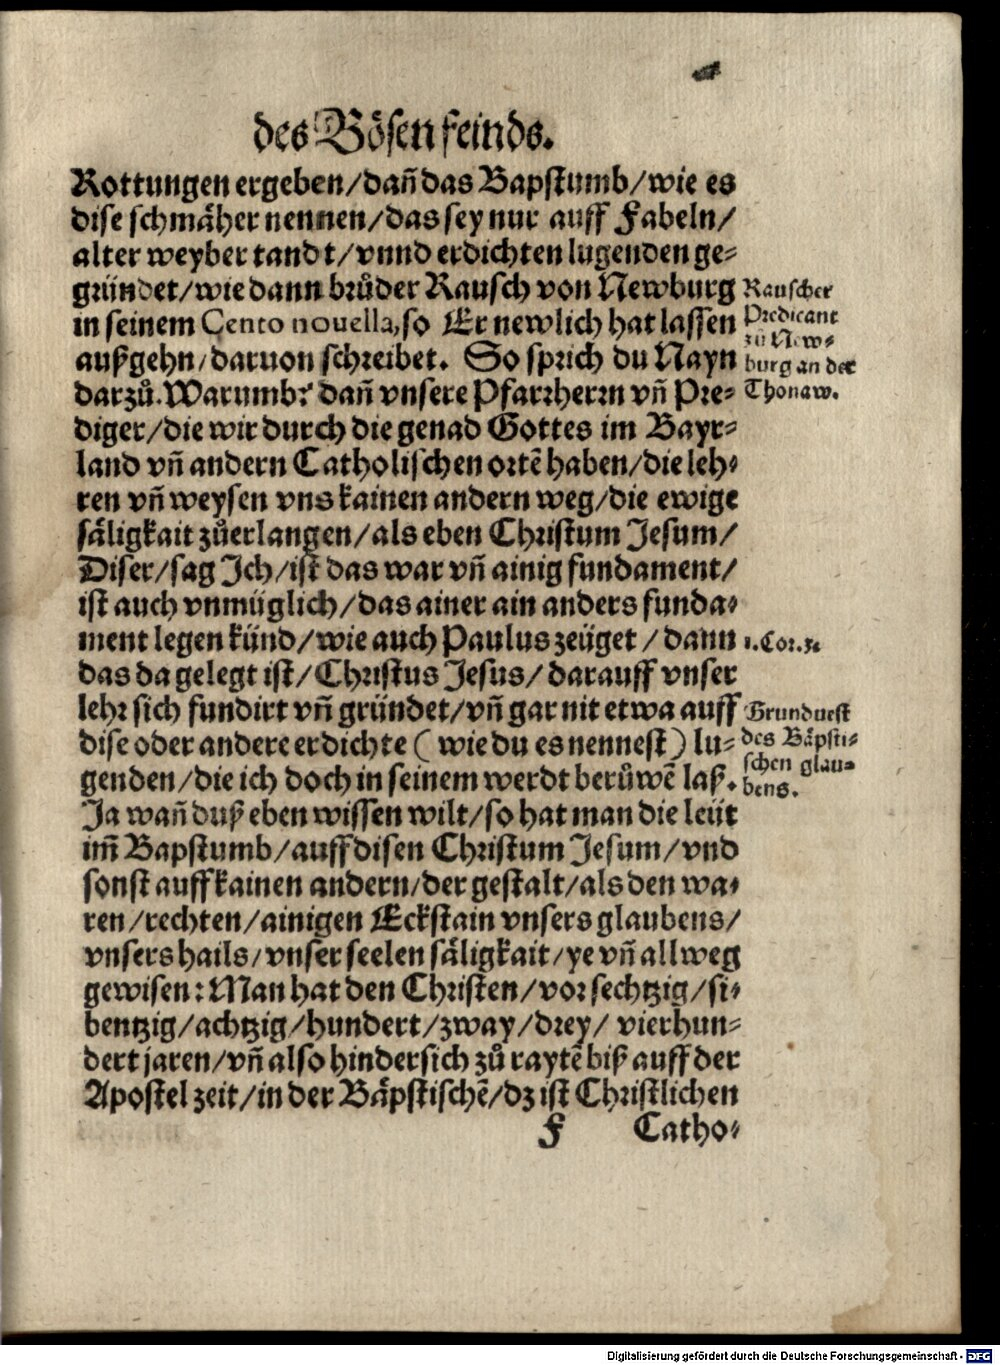 des Bösen feinds.
Rottungen ergeben/dañ das Bapstumb/wie es
dise schmäher nennen/das sey nur auff Fabeln/
alter weyber tandt/vnnd erdichten lugenden ge⸗
gründet/wie dann brůder Rausch von Newburg
in seinem Cento nouella, so Er newlich hat lassen
außgehn/daruon schreibet. So sprich du Nayn
darzů. Warumb? dañ vnsere Pfarrherrn vñ Pre⸗
diger/die wir durch die genad Gottes im Bayr⸗
land vñ andern Catholischen ortē haben/die leh⸗
ren vñ weysen vns kainen andern weg/die ewige
säligkait zůerlangen/als eben Christum Jesum/
Diser/sag Ich/ist das war vñ ainig fundament/
ist auch vnmüglich/das ainer ain anders funda⸗
ment legen künd/wie auch Paulus zeüget/dann
das da gelegt ist/Christus Jesus/darauff vnser
lehr sich fundirt vñ gründet/vñ gar nit etwa auff
dise oder andere erdichte (wie du es nennest) lu⸗
genden/die ich doch in seinem werdt berůwē laß.
Ja wañ duß eben wissen wilt/so hat man die leüt
im̃ Bapstumb/auff disen Christum Jesum/vnd
sonst auff kainen andern/der gestalt/als den wa⸗
ren/rechten/ainigen Eckstain vnsers glaubens/
vnsers hails/vnser seelen säligkait/ye vñ allweg
gewisen: Man hat den Christen/vor sechtzig/si⸗
bentzig/achtzig/hundert/zway/drey/vierhun⸗
dert jaren/vñ also hindersich zů raytē biß auff der
Apostel zeit/in der Bäpstischē/dz ist Christlichen
F Catho⸗
Rauscher
Predicant
zů New⸗
burg an der
Thonaw.
1. Cor. 3.
Grunduest
des Bäpsti⸗
schen glau⸗
bens.
Digitalisierung gefördert durch die Deutsche Forschungsgemeinschaft - DFG